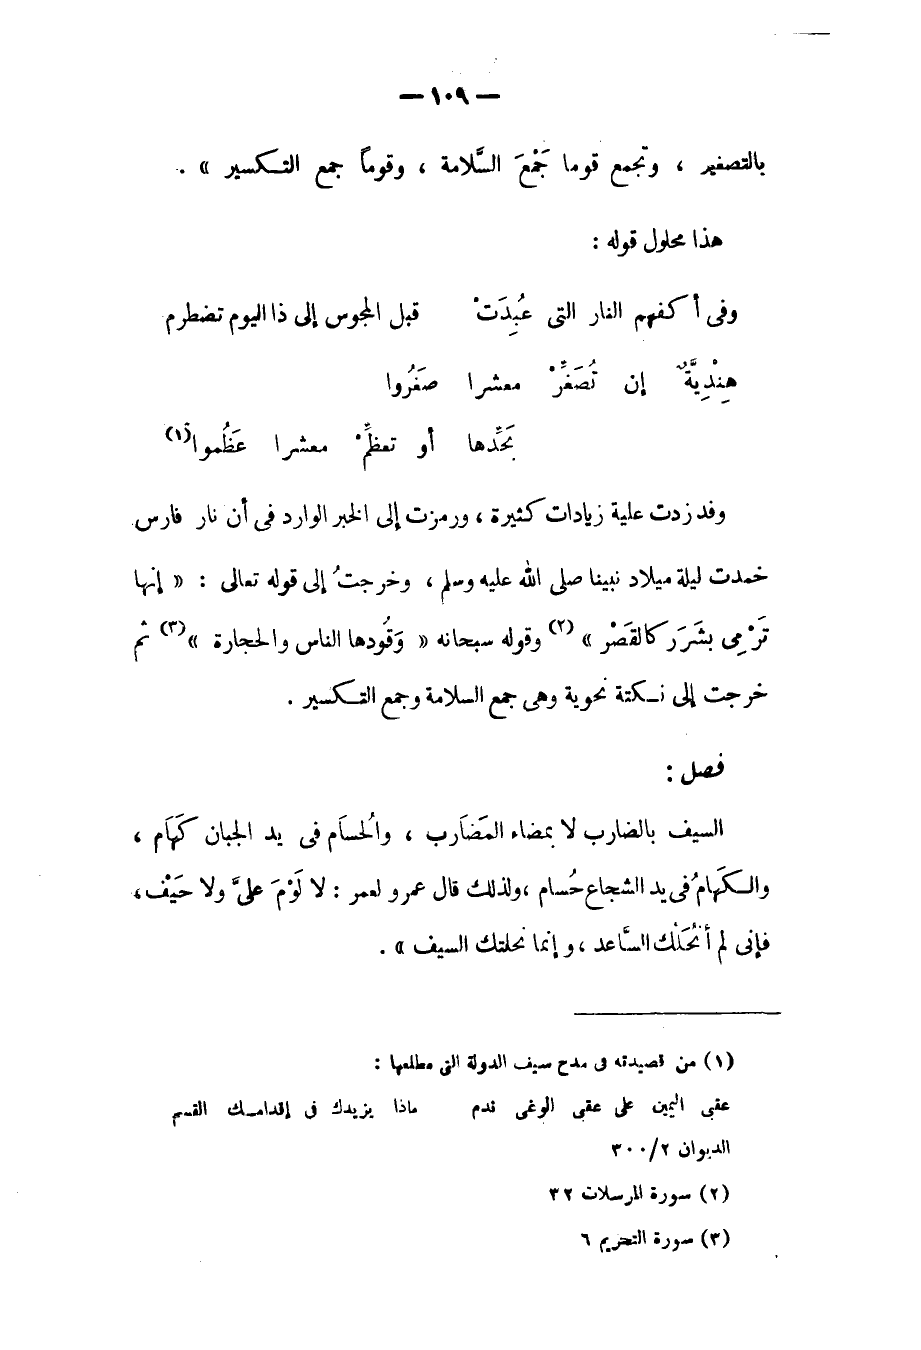 — ١٠٩ —
بالتصغير ، وتجمع قوما جَمْعَ السَّلامة ، وقوماً جمع التـكسير » .
هذا محلول قوله :
وفى أكفهم النار التى عُبِدَتْ قبل المجوس إلى ذا اليوم تضطرم
هِنْدِيَّةٌ إن تُصَغِّرْ معشرا صَغُروا
بَحَدِّها أو تعظِّمْ معشرا عَظُموا(١)
وفد زدت علية زيادات كثيرة ، ورمزت إلى الخبر الوارد فى أن نار فارس
خمدت ليلة ميلاد نبينا صلى الله عليه وسلم ، وخرجتُ إلى قوله تعالى : « إنها
تَرْمِى بشَرَر كالقَصْر » (٢) وقوله سبحانه « وَقُودها الناس والحجارة »(٣) ثم
خرجت إلى نـكتة نحوية وهى جمع السلامة وجمع التـكسير .
فصل :
السيف بالضارب لا بمضاء المَضَارب ، والُحسَام فى يد الجبان كَهَام ،
والـكَهامُ فى يد الشجاع حُسام ،ولذلك قال عمرو لعمر : لا لَوْمَ علىَّ ولا حَيْف،
فإنى لم أنْحَلْك السَّاعد ، وإنما نحلتك السيف » .
(١) من قصيدته فى مدح سيف الدولة التى مطلعها :
عقبى اليمين على عقبى الوغى ندم ماذا يزيدك فى إقدامـك القسم
الديوان ٢/٣٠٠
(٢) سورة المرسلات ٣٢
(٣) سورة التحريم ٦